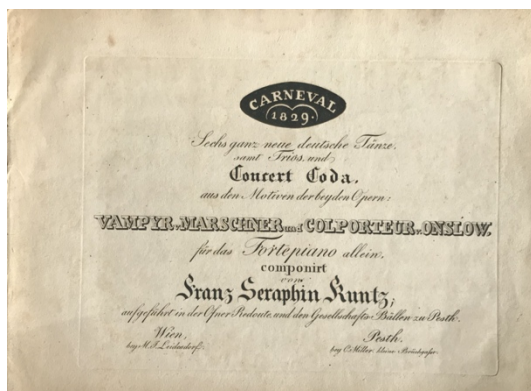 CARNEVAL
1829.
Sechs ganz neue deutsche Tänze,
samt Trios, und
Concert Coda,
aus den Motiven der beyden Opern:
VAMPYR v. MARSCHNER und COLPORTEUR v. ONSLOW,
für das Fortepiano allein,
componirt
von
Franz Seraphin Kuntz;
aufgeführt in der Ofner Redoute, und den Gesellschafts-Bällen zu Pesth.
Wien, Pesth,
bey M. J. Leidesdorf. bey C. Miller kleine Brückgasse.